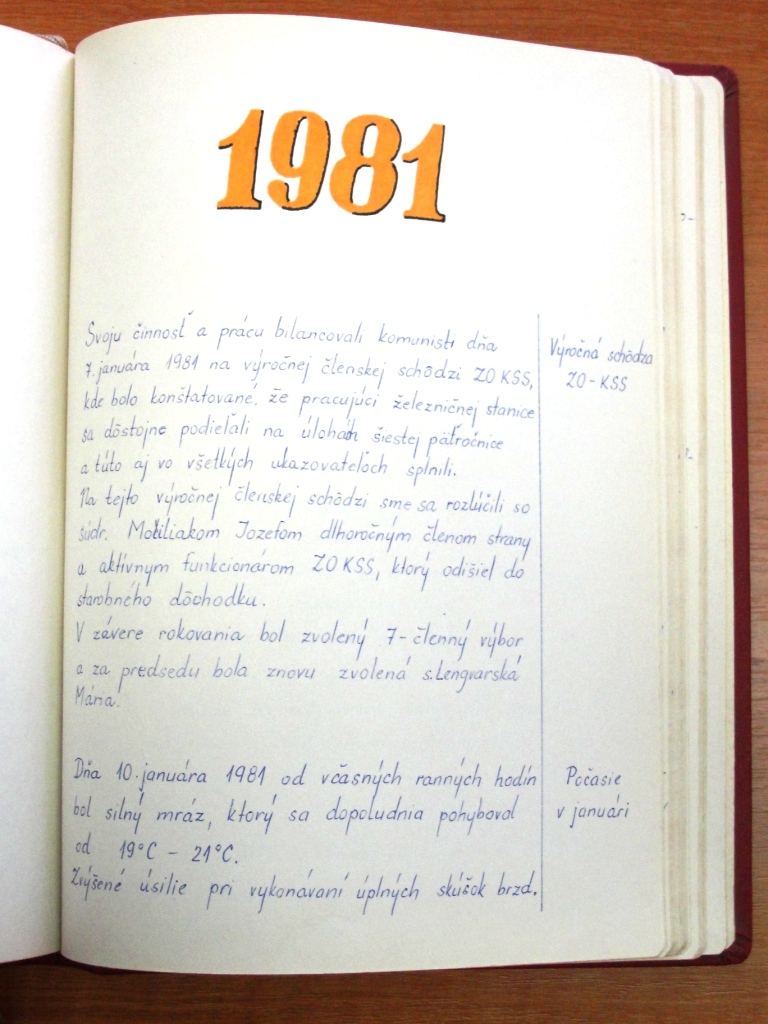 1981
Svoju činnosť a prácu bilancovali komunisti dňa
7. januára 1981 na výročnej členskej schôdzi ZO KSS,
kde bolo konštatované, že pracujúci železničnej stanice
sa dôstojne podieľali na úlohách šiestej päťročnice
a túto aj vo všetkých ukazovateľoch splnili.
Na tejto výročnej členskej schôdzi sme sa rozlúčili so
súdr. Jozefom dlhoročným členom strany
a aktívnym funkcionárom ZO KSS, ktorý odišiel do
starobného dôchodku.
V závere rokovania bol zvolený 7-členný výbor
a za predsedu bola znovu zvolená s. Lengvarská
Mária.
Výročná schôdza
ZO-KSS
Dňa 10. januára 1981 od včasných ranných hodín
bol silný mráz, ktorý sa dopoludnia pohyboval
od 19°C - 21°C.
Zvýšené úsilie pri vykonávaní úplných skúšok brzd.
Počasie
v januári